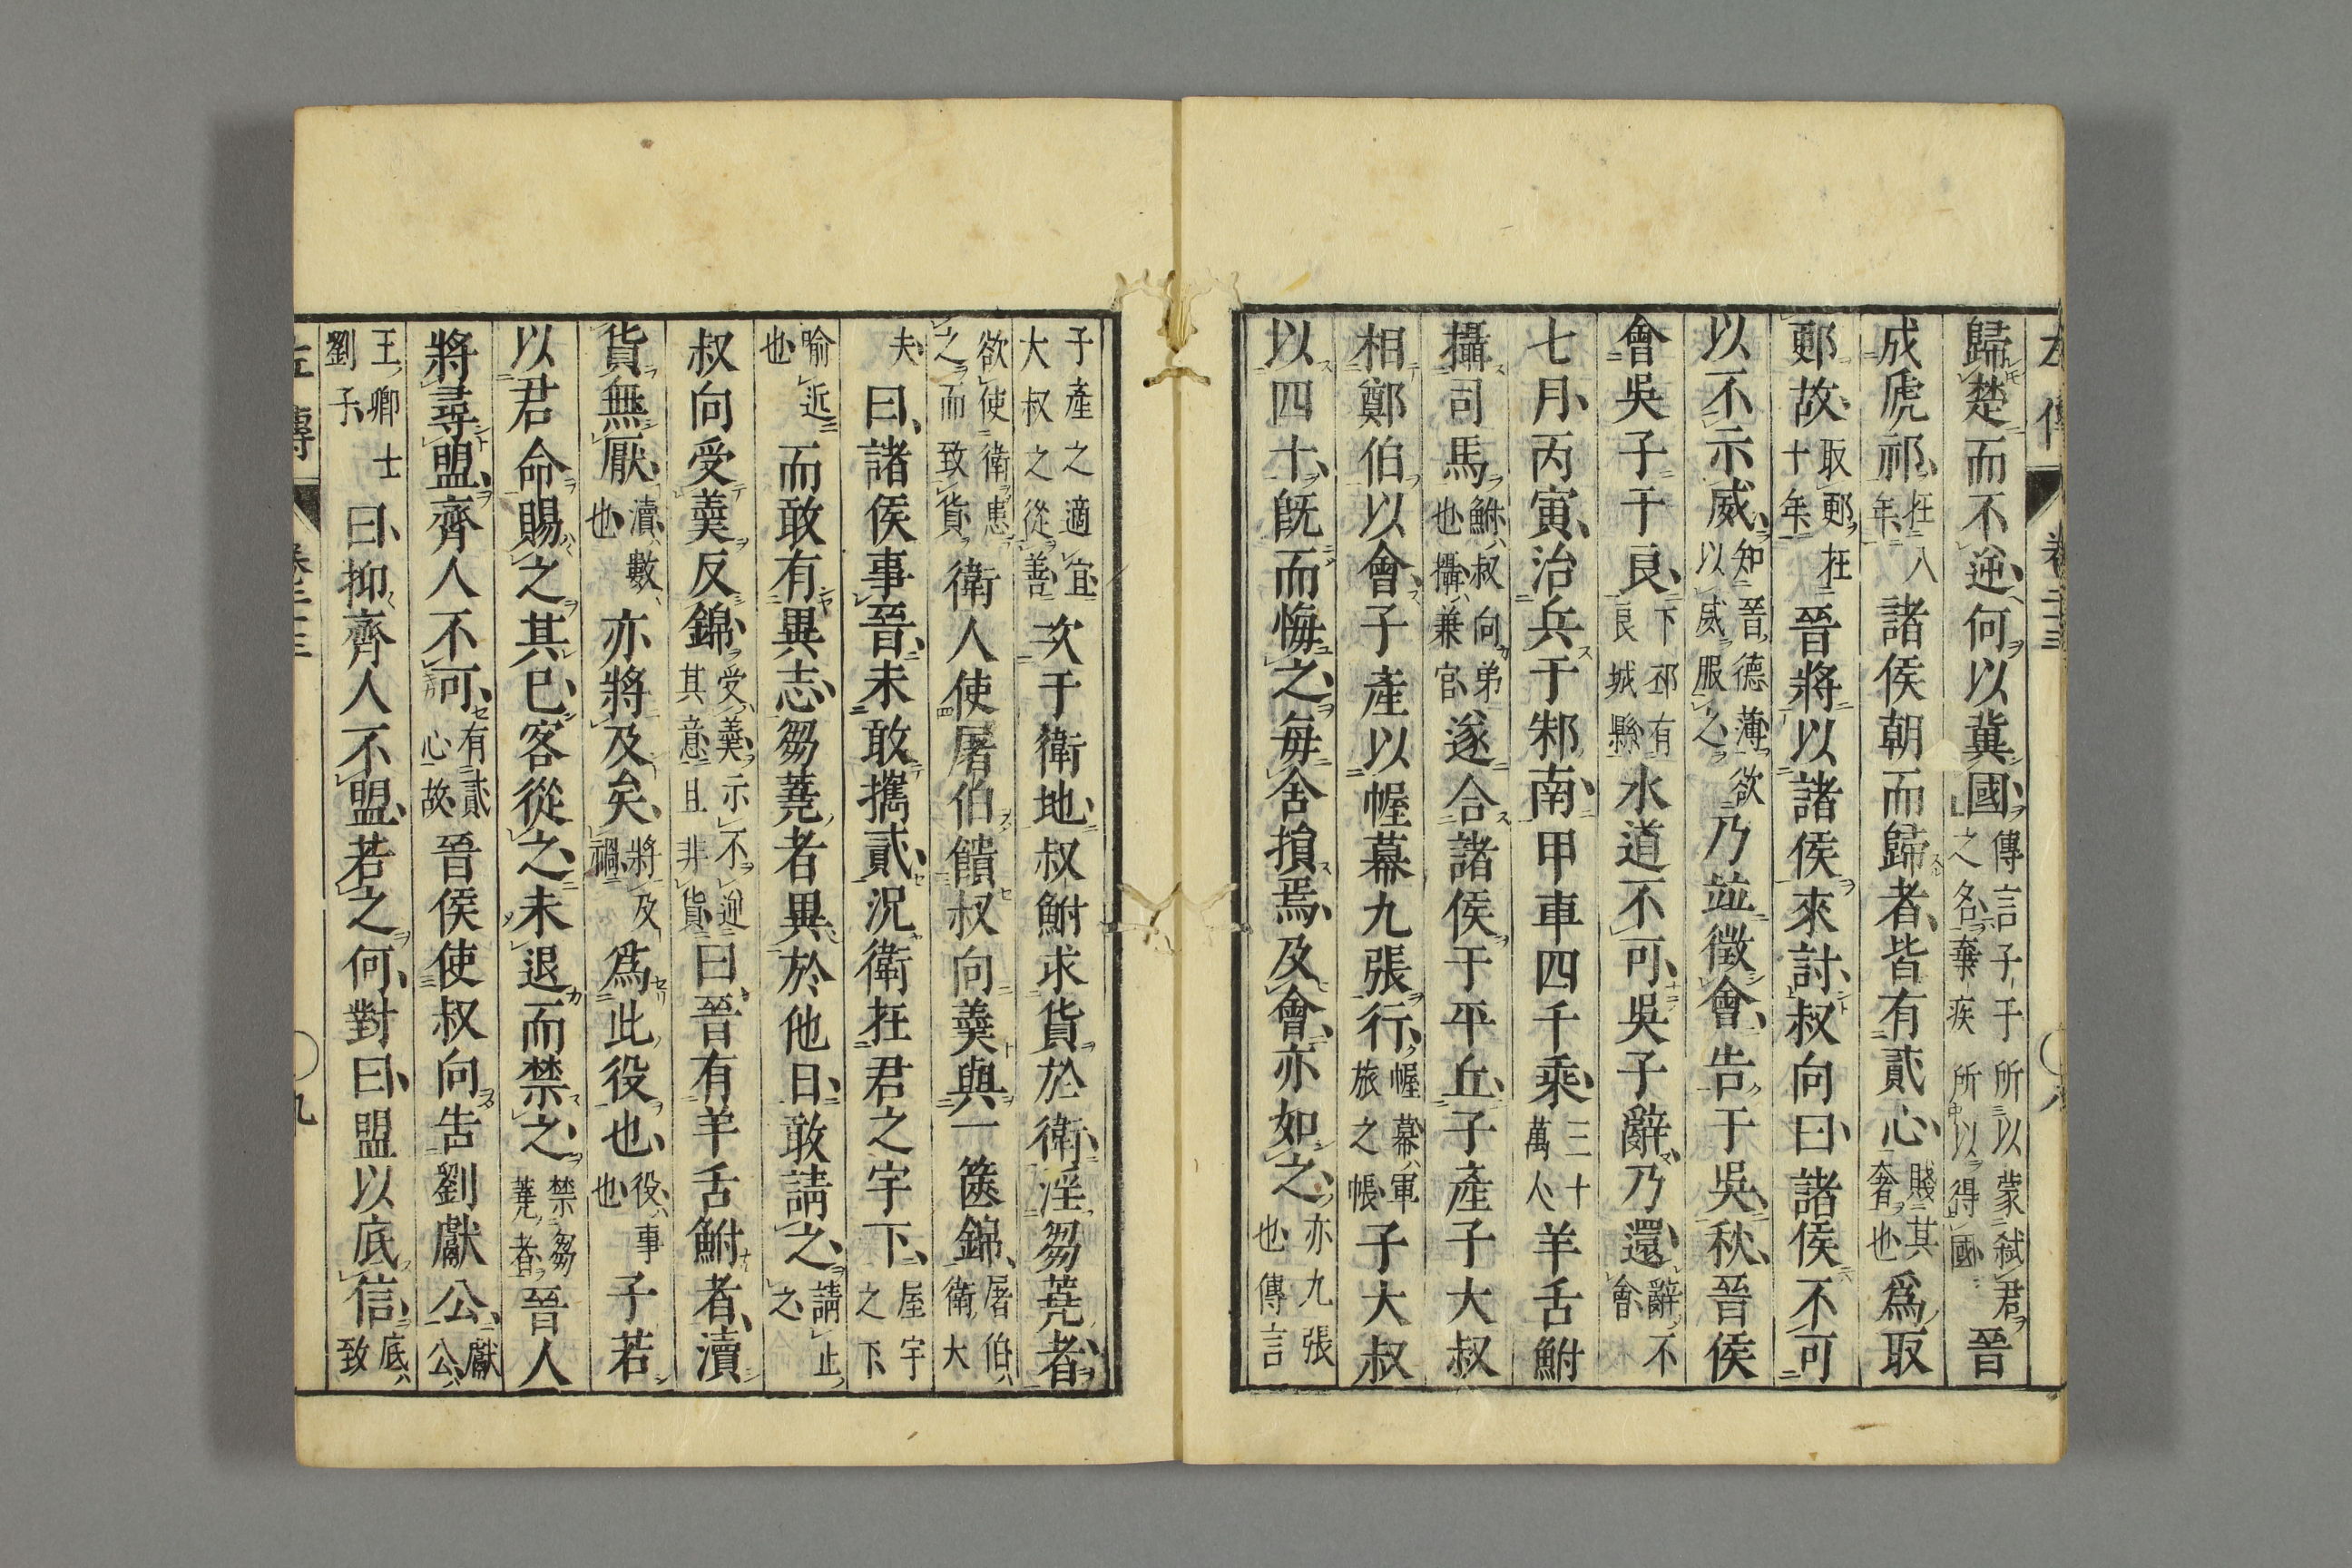 左傳　卷二十三　八
歸楚而不逆何以冀國傳言子干所以蒙弑君之名棄疾所以得國晉
成虒祁在八年諸侯朝而歸者皆有貳心賤其奢也爲取
郠故取郠在十年晉將以諸侯來討叔向曰諸侯不可
以不示威知晉德薄欲以威服之乃並徵會告于吳秋晉侯
會吳子于良下邳有良城縣水道不可吳子辭乃還辭不會
七月丙寅治兵于邾南甲車四千乘三十萬人羊舌鮒
攝司馬鮒叔向弟也攝兼官遂合諸侯于平丘子產子大叔
相鄭伯以會子產以幄幕九張行幄幕軍旅之帳子大叔
以四十既而悔之每舍損焉及會亦如之亦九張也傳言
子產之適宜大叔之從善次于衛地叔鮒求貨於衛淫芻蕘者
欲使衛患之而致貨衛人使屠伯饋叔向羹與一篋錦屠伯衛大
夫曰諸侯事晉未敢攜貳況衛在君之宇下屋宇之下
喻近也而敢有異志芻蕘者異於他日敢請之請止之
叔向受羹反錦受羹示不逆其意且非貨曰晉有羊舌鮒者瀆
貨無厭瀆數也亦將及矣將及禍爲此役也役事也子若
以君命賜之其已客從之未退而禁之禁芻蕘者晉人
將尋盟齊人不可有貳心故晉侯使叔向告劉獻公獻公
王卿士劉子曰抑齊人不盟若之何對曰盟以底信底致
左傳　卷二十三　九